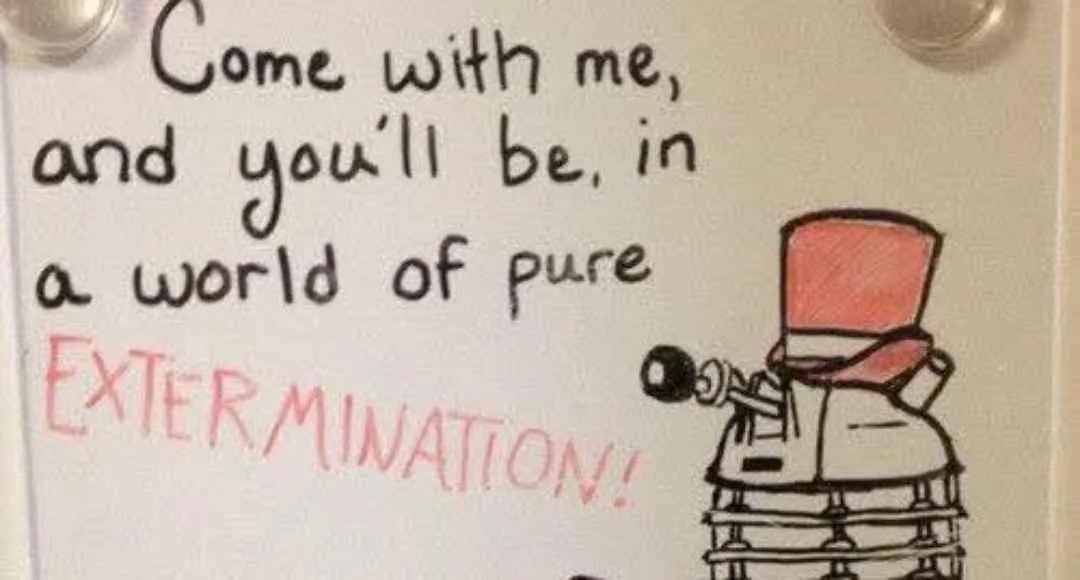 Come with me,
and you'll be, in
a world of pure
EXTERMINATION!